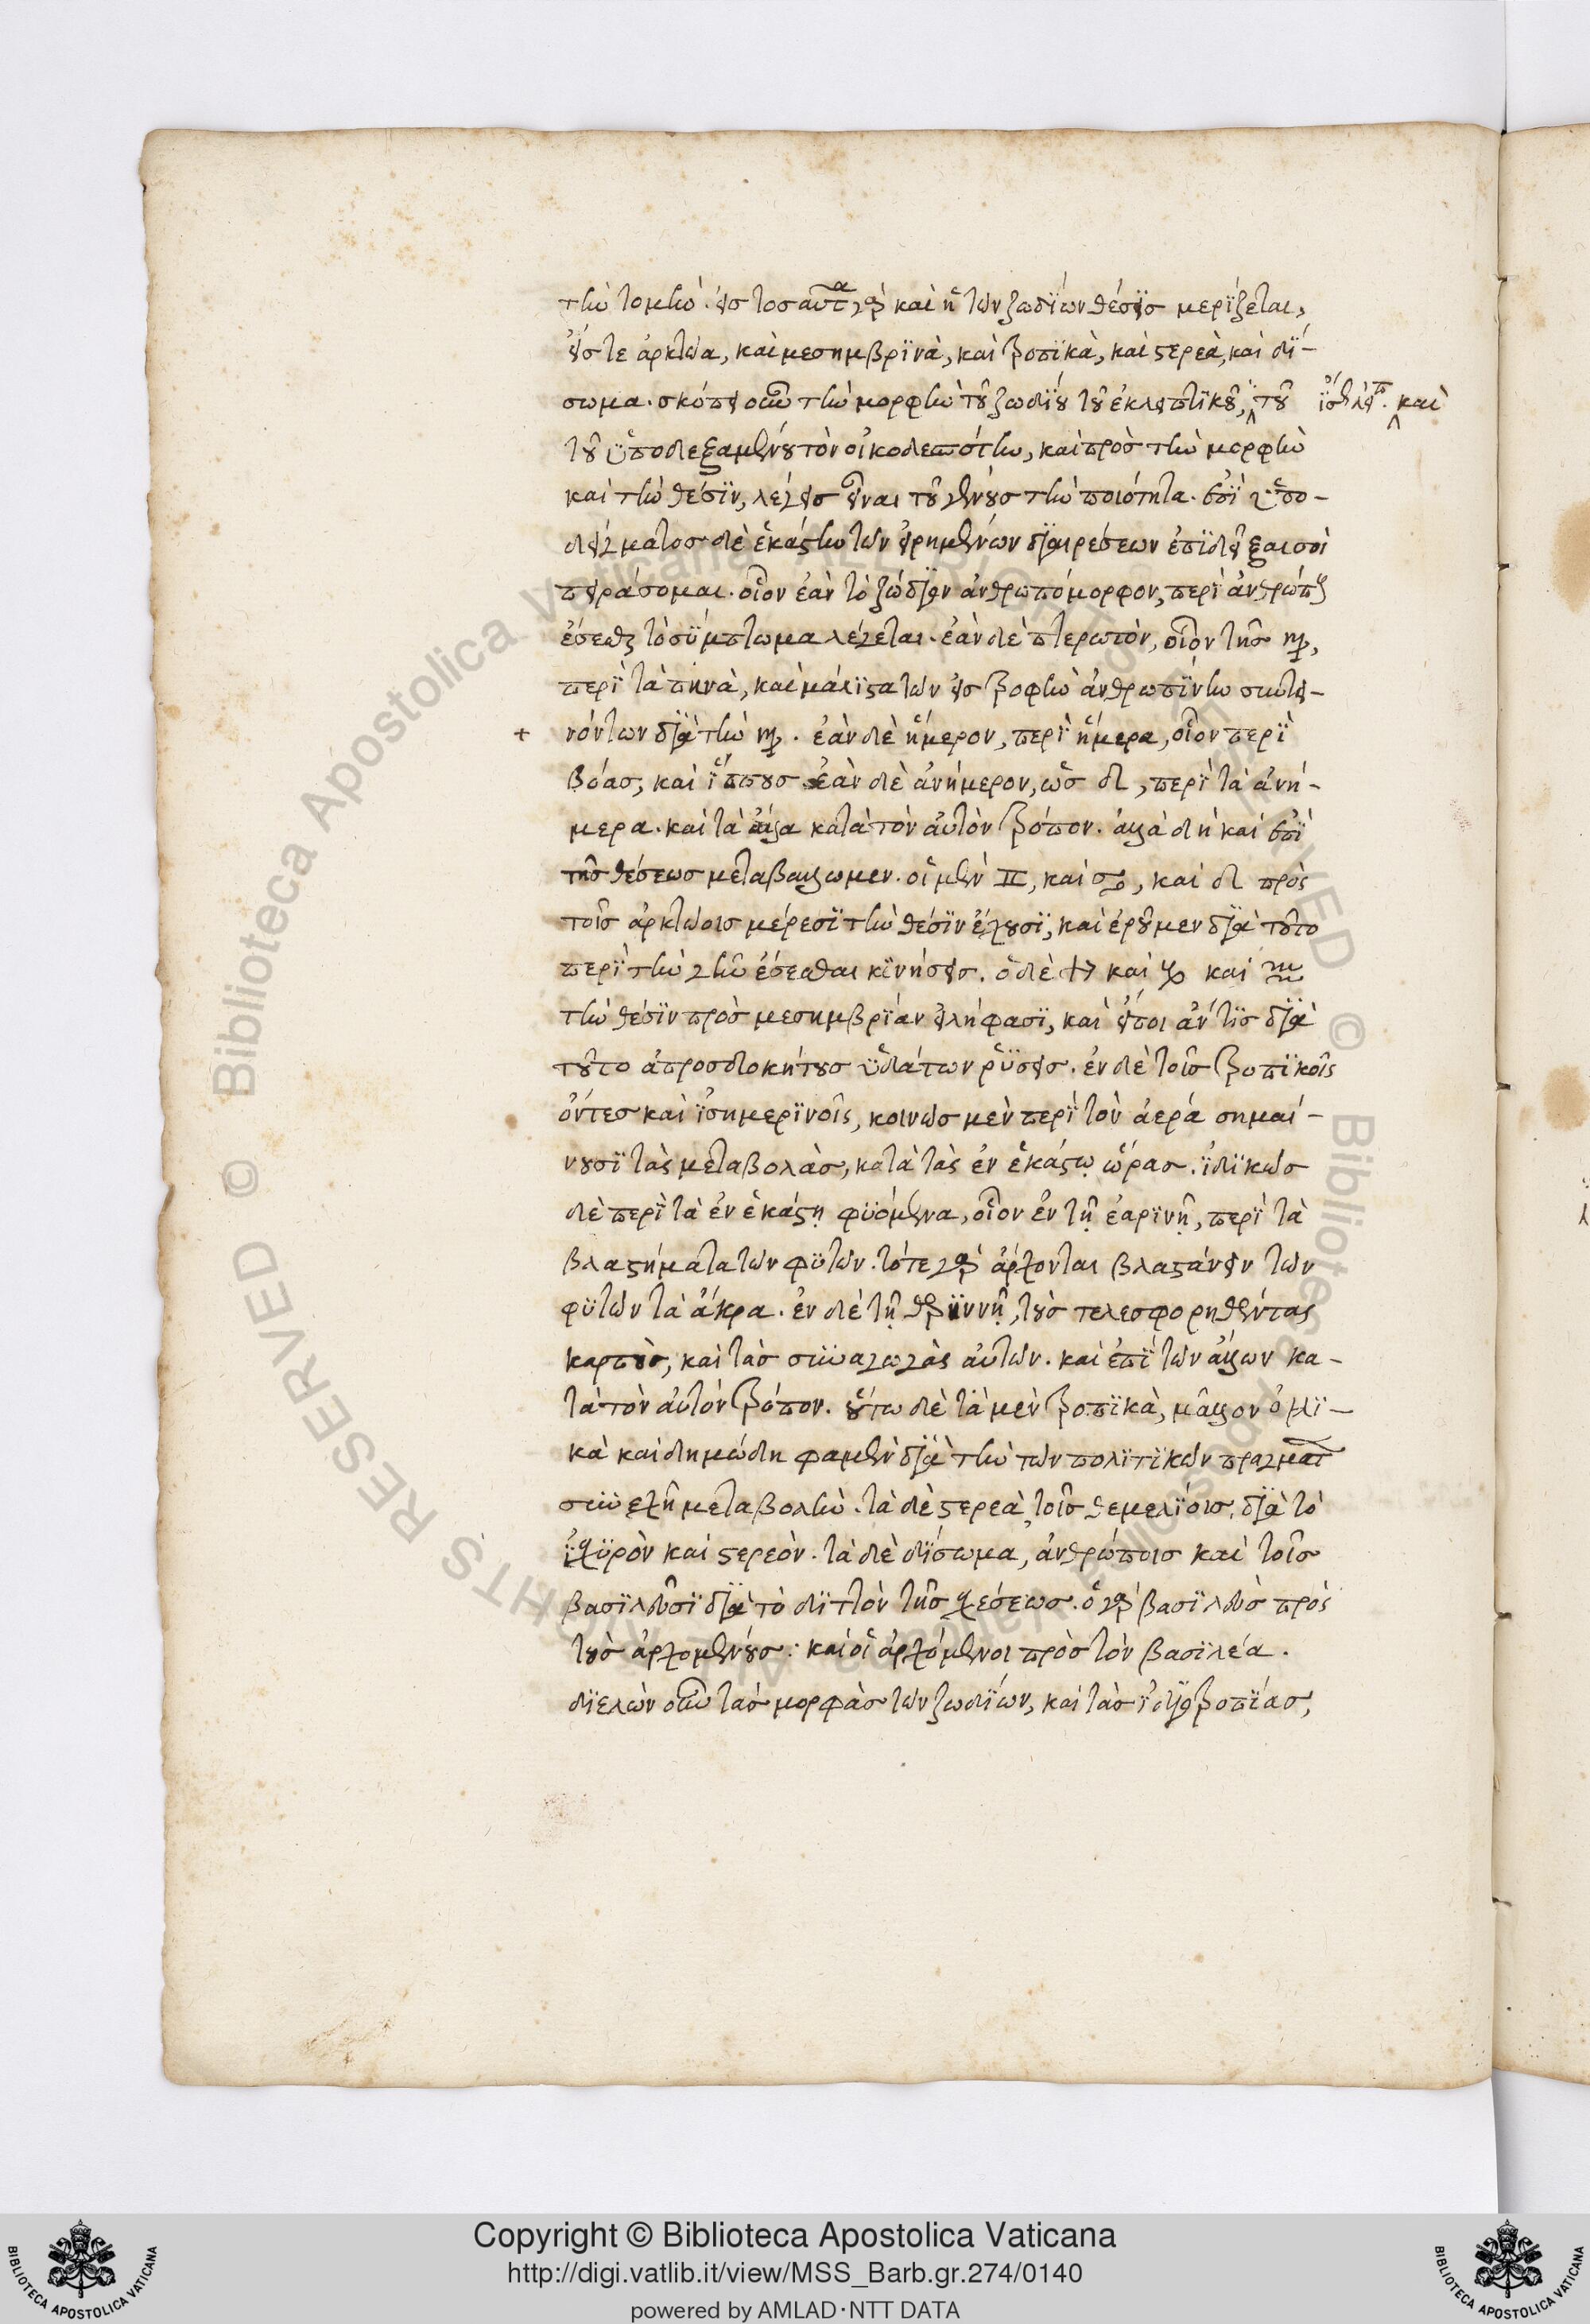 τὴν τομήν. εἰς τοσαῦτα γὰρ καὶ ἡ τῶν ζωδΐων θέσϊς μερΐζεται,
εἴς τε ἀρκτῶα, καὶ μεσημβρϊνὰ, καὶ τροπϊκὰ, καὶ στερεὰ, καὶ δΐ-
σωμα. σκόπει οὖν τὴν μορφὴν τοῦ ζωδΐου τοῦ ἐκλειπτϊκοῦ, τοῦ
καὶ
τοῦ ὑποδεξαμένου τὸν οἰκοδεσπότην, καὶ πρὸς τὴν μορφὴν
καὶ τὴν θέσϊν, λέγεις εἶναι τοῦ γένους τὴν ποιότητα. ἐπῒ ὑπο-
δείγματος δὲ ἑκάστην τῶν εἰρημένων διαιρέσεων ἐπϊδεῖξαι σοὶ
πειράσομαι. οἷον ἐὰν τὸ ζώδϊον ἀνθρωπόμορφον, περῒ ἀνθρώπους
ἔσεσθαι τὸ σύμπτωμα λέγεται. ἐὰν δὲ πτερωτὸν, οἷον τῆς ♍,
περῒ τὰ πτηνὰ, καὶ μάλϊστα τῶν εἰς τροφὴν ἀνθρωπΐνην συντει-
+ νόντων δϊὰ τὴν ♍. ἐὰν δὲ ἥμερον, περῒ ἥμερα, οἷον περῒ
βόας, καὶ ἵππους. ἐὰν δὲ ἀνήμερον, ὡς ♌, περῒ τὰ ἀνή-
μερα. καὶ τὰ ἄλλα κατὰ τὸν αὐτὸν τρόπον. ἀλλὰ δὴ καὶ ἐπῒ
τῆς θέσεως μεταβάλλωμεν. οἱ μὲν ♊, καὶ ♋, καὶ ♌ πρὸς
τοῖς ἀρκτώοις μέρεσϊ τὴν θέσϊν ἔχουσϊ, καὶ ἐροῦμεν δϊὰ τοῦτο
περῒ τὴν γῆν ἔσεσθαι κϊνήσεις. ὁ δὲ ♐ καὶ ♑ καὶ ♒
τὴν θέσϊν πρὸς μεσημβρΐαν εἰλήφασϊ, καὶ εἴποι ἄν τϊς δϊὰ
τοῦτο ἀπροσδοκήτους ὑδάτων ῥύσεις. ἐν δὲ τοῖς τροπϊκοῖς
ὄντες καὶ ἰσημερϊνοῖς, κοινῶς μὲν περῒ τὸν ἀερά σημαί-
νουσϊ τὰς μεταβολὰς, κατὰ τὰς ἐν ἑκάστῳ ὥρας. ἰδϊκῶς
δὲ περῒ τὰ ἐν ἑκάστῃ φϋόμενα, οἷον ἐν τῇ ἐαρϊνῇ, περῒ τὰ
βλαστήματα τῶν φϋτῶν. τότε γὰρ ἄρχονται βλαστάνειν τῶν
φϋτῶν τὰ ἄκρα. ἐν δὲ τῇ θερϊνῇ, τοὺς τελεσφορηθέντας
καρποὺς, καὶ τὰς συναγωγὰς αὐτῶν. καὶ ἐπῒ τῶν ἄλλων κα-
τὰ τὸν αὐτὸν τρόπον. οὕτω δὲ τὰ μὲν τροπϊκὰ, μᾶλλον ὀχλϊ-
κὰ καὶ δημώδη φαμὲν δϊὰ τὴν τῶν πολϊτϊκῶν πραγμάτων
συνεχῆ μεταβολήν. τὰ δὲ στερεὰ, τοῖς θεμελΐοις, δϊὰ τὸ
ἰσχϋρὸν καὶ στερεόν. τὰ δὲ δΐσωμα, ἀνθρώποις καὶ τοῖς
βασϊλεῦσϊ δϊὰ τὸ δϊττὸν τῆς σχέσεως. ὁ γὰρ βασϊλεὺς πρὸς
τοὺς ἀρχομένους: καὶ οἱ ἀρχόμενοι πρὸς τὸν βασϊλέα.
δϊελὼν οὖν τὰς μορφὰς τῶν ζωδΐων, καὶ τὰς ἰδϊοτροπΐας,
Copyright © Biblioteca Apostolica Vaticana
http://digi.vatlib.it/view/MSS_Barb.gr.274/0140
powered by AMLAD·NTT DATA
BIBLIOTECA APOSTOLICA VATICANA
BIBLIOTECA APOSTOLICA VATICANA